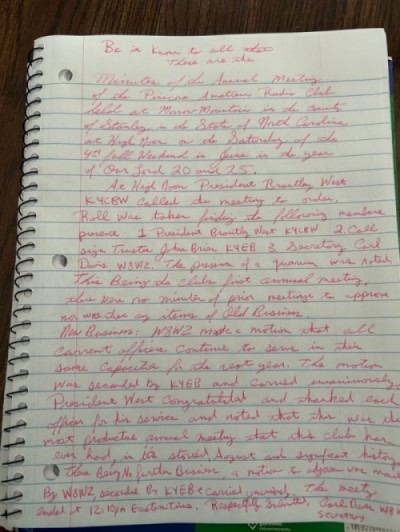 Be it known to all that
These are the
Minutes of the Annual Meeting
of the Amateur Radio Club
held at Morrow Mountain in the county
of Stanley in the State of North Carolina
at High Noon on the Saturday of the
4th full Weekend in June in the year
of Our Lord 20 and 25.
At High Noon President Brantley West
K4CBW Called the meeting to order.
Roll was taken finding the following members
present 1 President Brantley West K4CBW 2. Call
sign Trustee John Brier KY4EB 3 Secretary Carl
Davis W8WZ. The presence of a quorum was noted.
This Being the clubs first annual meeting,
there were no minutes of prior meetings to approve
nor was there any items of Old Business.
New Business: W8WZ made a motion that all
current officers continue to serve in their
same Capacities for the next year. The motion
was seconded by KY4EB and Carried unanimously.
President West Congratulated and thanked each
officer for his service and noted that this was the
most productive annual meeting that this club has
ever had, in its storied, August and significant history
There Being No further Business a motion to adjourn was made
By W8WZ, seconded By KY4EB & Carried The meeting
ended at 12:10pm Eastern time. Respectfully Submitted, Carl Davis W8WZ
Secretary